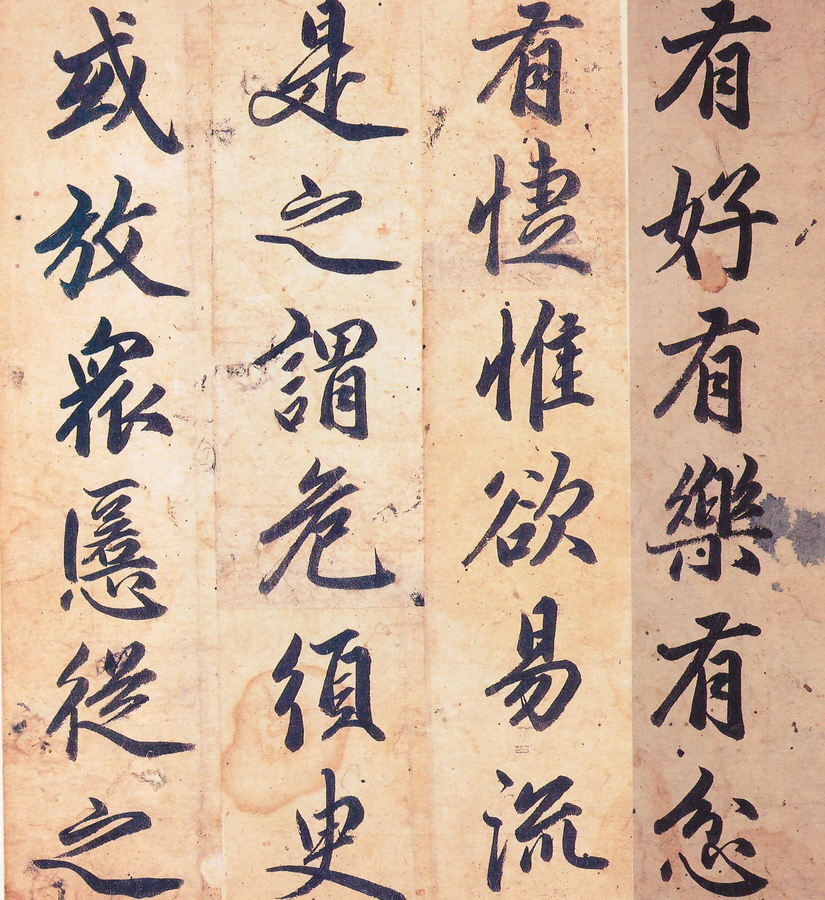 有好有樂有忿
有懥惟欲易流
是之謂危須臾
或放眾慝從之